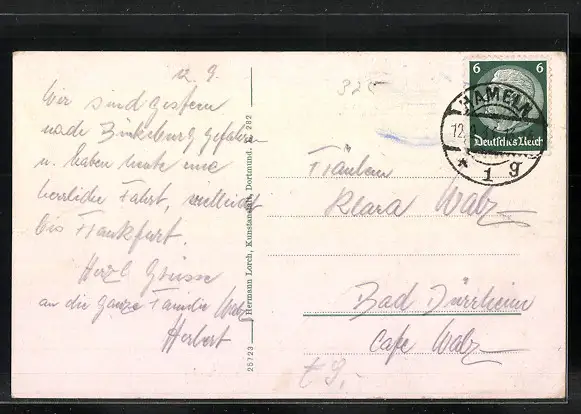 12. 9.
Wir sind gestern
nach Bückeburg gefahren
u. haben heute eine
herrliche Fahrt, vielleicht
bis Frankfurt.
Herzl. Grüsse
an die ganze Familie Walz
Herbert
25723
Hermann Lorch, Kunstanstalt, Dortmund. 282
6 6
Deutsches Reich
HAMELN
12.9.
* 1 g
Fräulein
Klara Walz
Bad Dürrheim
Cafe Walz